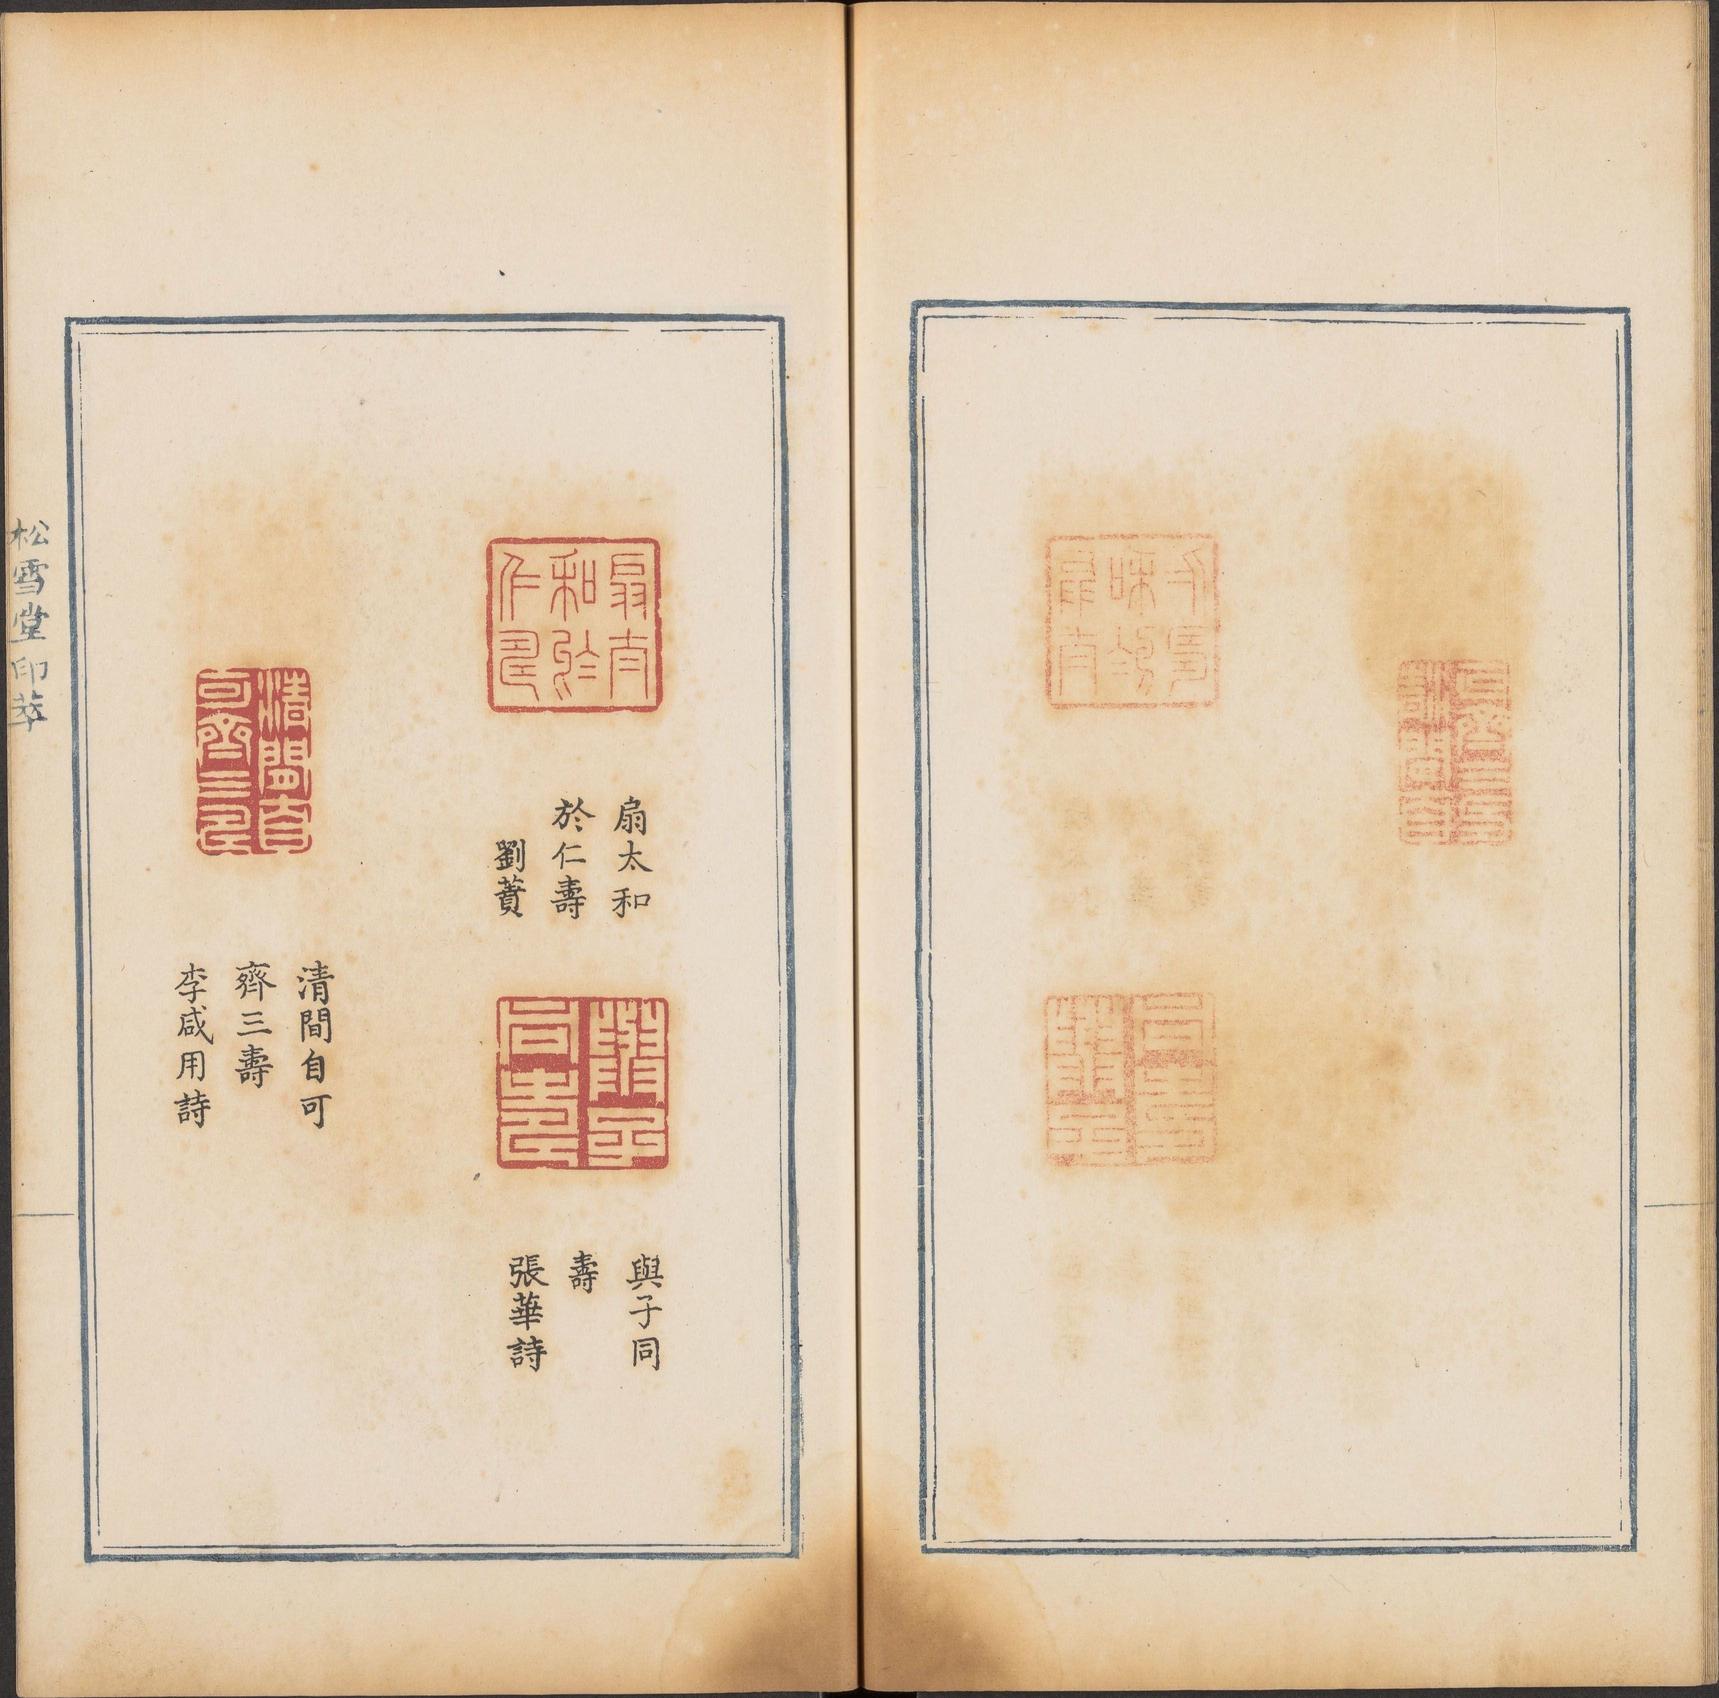 扇太
和於
仁壽
扇太和
於仁壽
劉蕡
與子
同壽
與子同
壽
張華詩
清間自
可齊三壽
清間自可
齊三壽
李咸用詩
松雪堂印萃